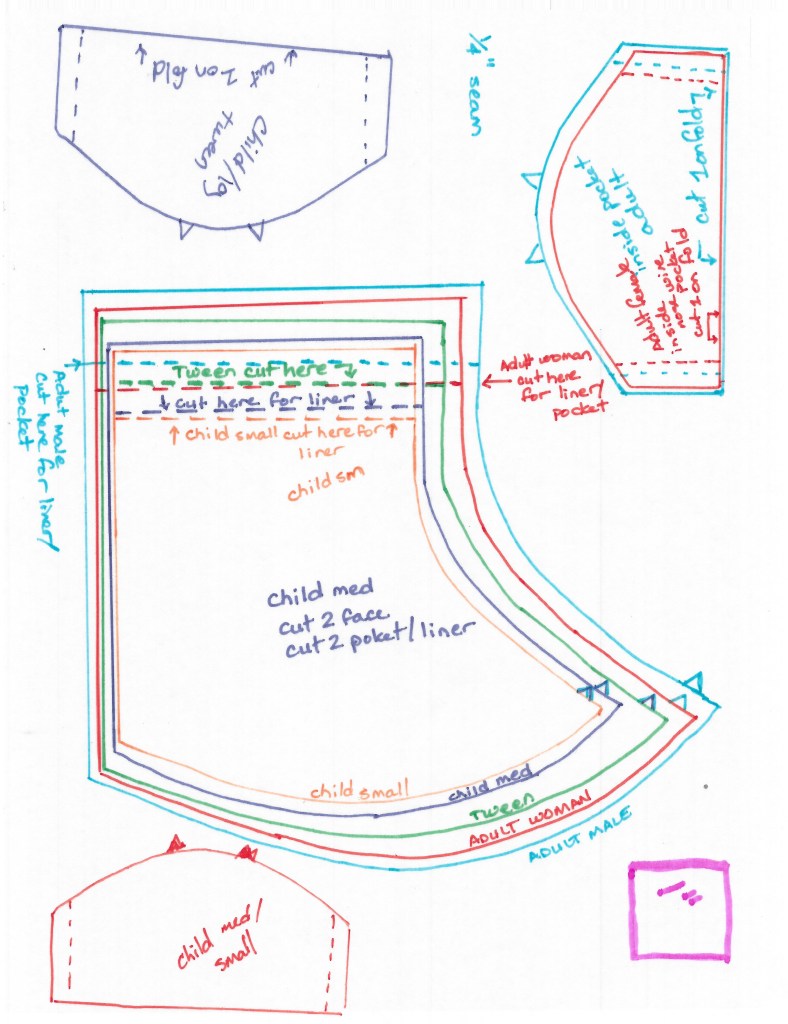 cut 1 on fold
child/lg
tween
1/4" seam
cut 1 on fold
inside pocket
adult
Adult female
inside wire
nose pocket
cut 1 on fold
Tween cut here
cut here for liner
child small cut here for
liner
child sm
Adult woman
cut here
for liner/
pocket
Adult male
cut here for liner/
pocket
child med
cut 2 face
cut 2 poket/liner
child small
child med
TWEEN
ADULT WOMAN
ADULT MALE
child med/
small